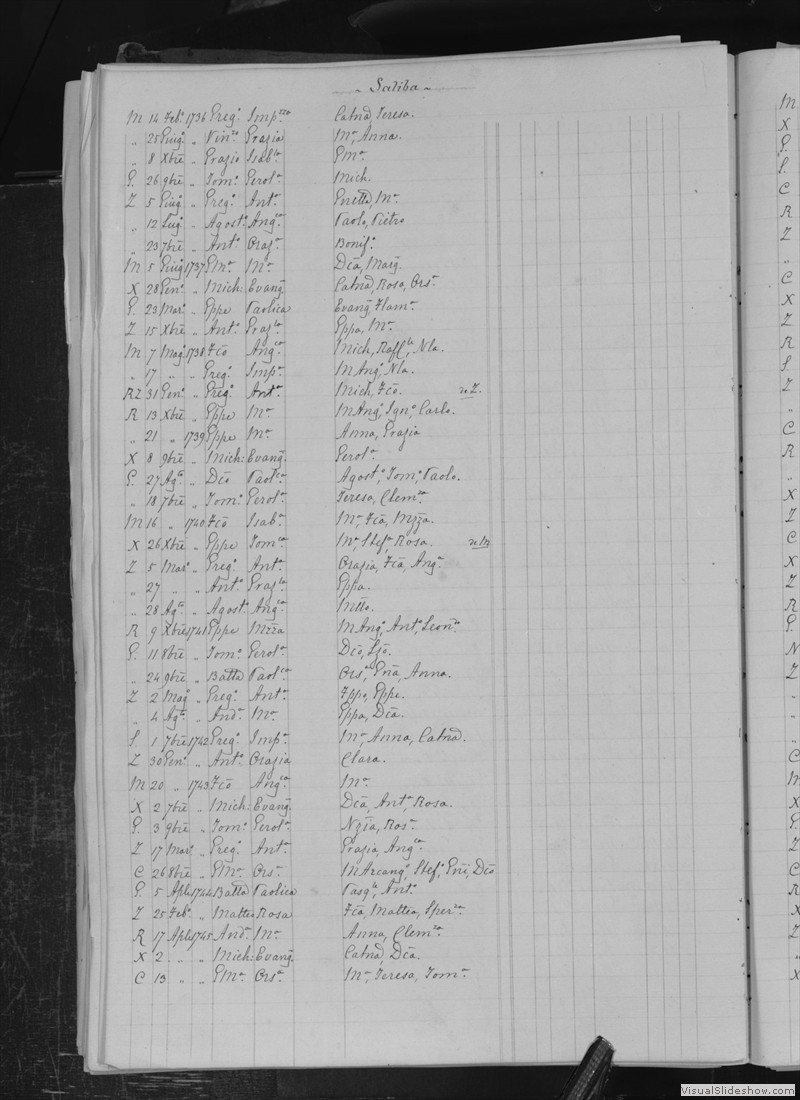 Saliba
M 14 Feb.º 1736 Greg.º Imp.zza Catnd, Teresa.
„ 25 Giug.º „ Vin.zo Grazia M.ª, Anna.
„ 8 Xbre „ Grazio Isab.la GMª.
G. 26 9bre „ Tom.º Perol.ª Mich.
Z 5 Giug.º „ Greg.º Ant.ª Gnetta, M.ª
„ 12 Lug.º „ Agost.º Ang.ca Paolo, Pietro
„ 23 7bre „ Ant.º Graz.ª Bonif.º
M 5 Giug.º 1737 GM.ª M.ª Dca, Marg.
X 28 Gen.º „ Mich: Evang. Catnd, Rosa, Ors.ª
G. 23 Mar.º „ Gppe Paolica Evang, Flam.ª
Z 15 Xbre „ Ant.º Graz.la Gppa, M.ª
M 7 Mag.º 1738 Fco Ang.ca Mich, Raff.la, Nla.
„ 17 „ „ Greg.º Imp.ª MAng.ª, Nla.
RZ 31 Gen.º „ Greg.º Ant.ª Mich, Fco. in Z.
R 13 Xbre „ Gppe M.ª MAng.ª, Ign.º, Carlo.
„ 21 „ 1739 Gppe M.ª Anna, Grazia
X 8 9bre „ Mich: Evang. Perol.ª
G. 27 Ag.to „ Dco Paol.ca Agost.º, Tom.º, Paolo.
„ 18 7bre „ Tom.º Perol.ª Teresa, Clem.za
M 16 „ 1740 Fco Isab.la M.ª, Fca, Mzza.
X 26 Xbre „ Gppe Tom.ca M.ª, Stef.ª, Rosa. in M
Z 5 Mar.º „ Greg.º Ant.ª Grazia, Fca, Ang.ª
„ 27 „ „ Ant.º Graz.la Gppa.
„ 28 Ag.to „ Agost.º Ang.ca Ntto.
R 9 Xbre 1741 Gppe Mzza MAng.ª, Ant.ª, Leon.da
G. 11 8bre „ Tom.º Perol.ª Dco, Ljo.
„ 24 9bre „ Batta Paol.ca Ors.ª, Gna, Anna.
Z 2 Mag.º „ Greg.º Ant.ª Fppo, Gppe.
„ 4 Ag.to „ And.ª M.ª Gppa, Dca.
S. 1 7bre 1742 Greg.º Imp.ª M.ª, Anna, Catnd.
Z 30 Gen.º „ Ant.º Grazia Clara.
M 20 „ 1743 Fco Ang.ca M.ª
X 2 7bre „ Mich: Evang. Dca, Ant.ª, Rosa.
G. 3 9bre „ Tom.º Perol.ª Nzia, Ros.ª
Z 17 Mar.º „ Greg.º Ant.ª Grazia, Ang.ca
C 26 8bre „ GM.ª Ors.ª MArcang.ª, Stef.ª, Gni, Dco
G. 5 Aple 1744 Batta Paolica Pasq.le, Ant.º
Z 25 Feb.º „ Matteo Rosa Fca, Mattea, Sper.za
R 17 Aple 1745 And.ª M.ª Anna, Clem.za
X 2 „ „ Mich: Evang. Catnd, Dca.
C 13 „ „ GM.ª Ors.ª M.ª, Teresa, Tom.ª
VisualSlideshow.com